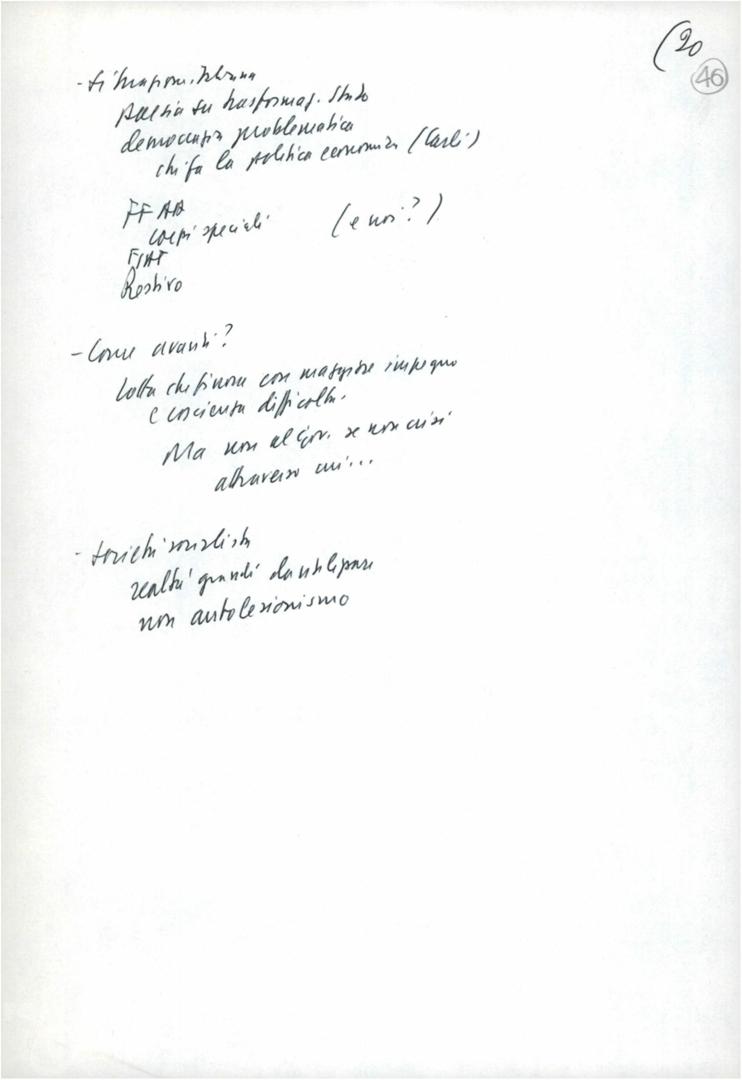 (20
46
- situazione italiana
su trasformaz. Stato
democrazia problematica
chi fa la politica economica (Carli)
FF AA
corpi speciali (e noi?)
FIAT
Restivo
- Come avanti?
Lotta che finora con maggiore impegno
e coscienza difficoltà.
Ma non al Gov. se non crisi
attraverso cui...
- società socialista
realtà grandi da
non autolesionismo